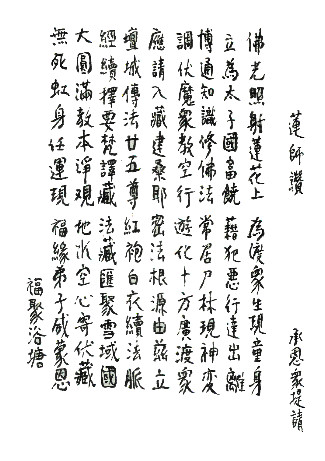 蓮師讚 承恩眾提請
佛光照射蓮花上 為渡眾生現童身
立為太子國富饒 藉犯惡行達出離
博通知識修佛法 常居尸林現神变
調伏魔眾教空行 遊化十方廣渡眾
應請入藏建桑耶 密法根源由茲立
壇城傳法廿五尊 紅袍白衣續法脈
經續擇要梵譯藏 法藏匯聚雪域國
大圓滿教本淨觀 地水空心寄伏藏
無死虹身任運現 福緣弟子咸蒙恩
福聚浴塘